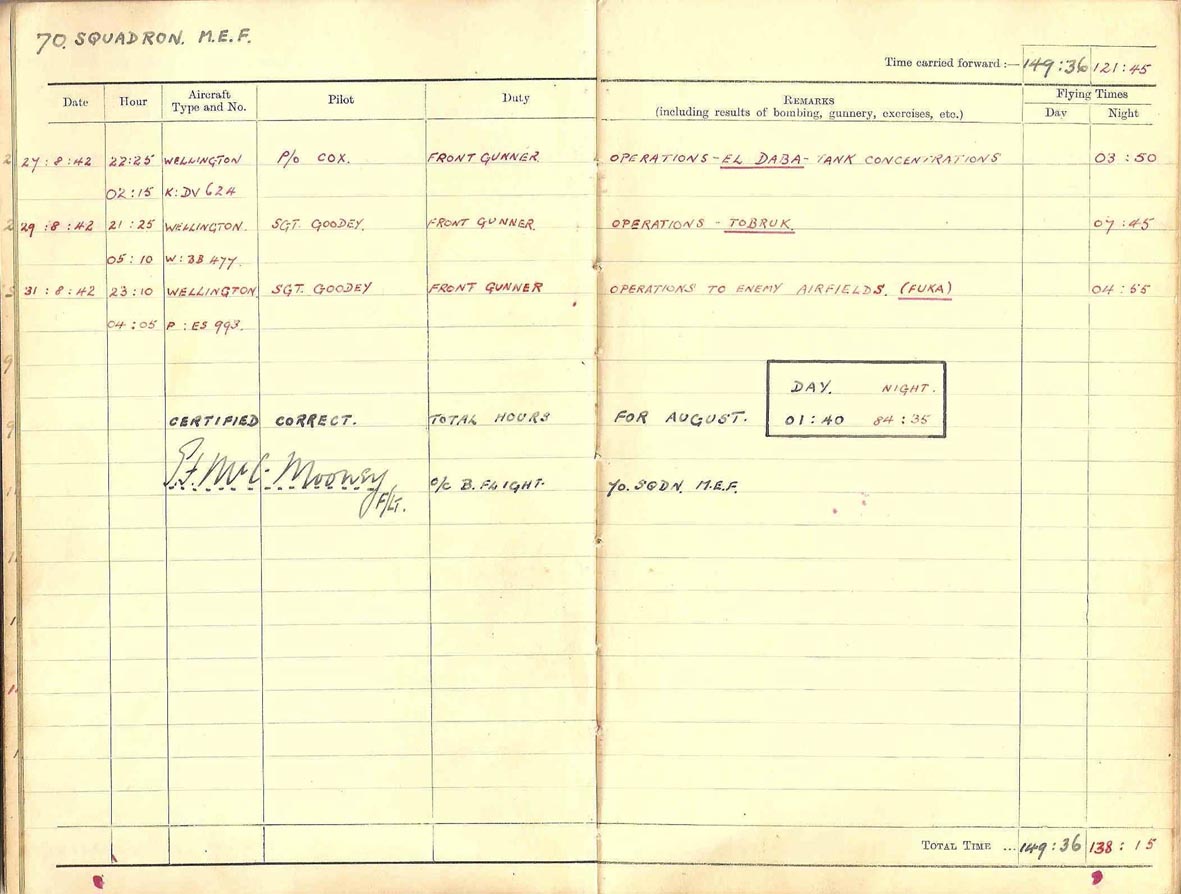 70. SQUADRON. M.E.F.
Time carried forward :— 149:36 121:45
Date Hour Aircraft Type and No. Pilot Duty REMARKS (including results of bombing, gunnery, exercises, etc.) Flying Times Day Night
27:8:42 22:25 WELLINGTON P/O COX. FRONT GUNNER OPERATIONS - EL DABA - TANK CONCENTRATIONS 03:50
02:15 K:DV 624
29:8:42 21:25 WELLINGTON. SGT. GOODEY. FRONT GUNNER. OPERATIONS - TOBRUK. 07:45
05:10 W:BB 477.
31:8:42 23:10 WELLINGTON SGT. GOODEY FRONT GUNNER OPERATIONS TO ENEMY AIRFIELDS. (FUKA) 04:55
04:05 P:ES 993.
DAY. NIGHT.
CERTIFIED CORRECT. TOTAL HOURS FOR AUGUST. 01:40 84:35
Mooney F/LT. O/C B. FLIGHT. 70. SQDN. M.E.F.
TOTAL TIME ... 149:36 138:15